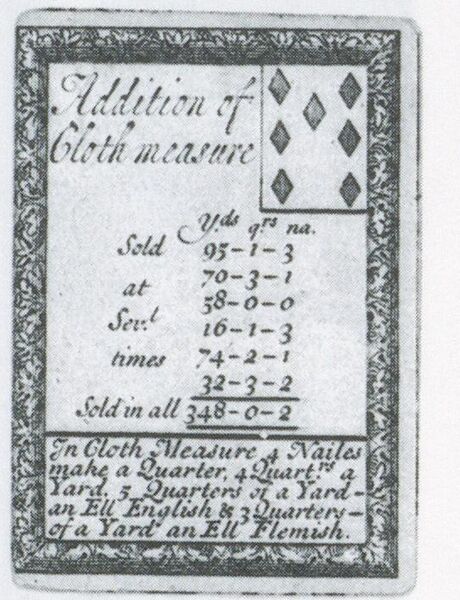 Addition of
Cloth measure
Yds qrs na.
Sold 95-1-3
70-3-1
at 58-0-0
Sev.t 16-1-3
times 74-2-1
32-3-2
Sold in all 348-0-2
In Cloth Measure 4 Nailes
make a Quarter, 4 Quart.rs a
Yard. 5 Quarters of a Yard-
an Ell English & 3 Quarters-
of a Yard an Ell Flemish.